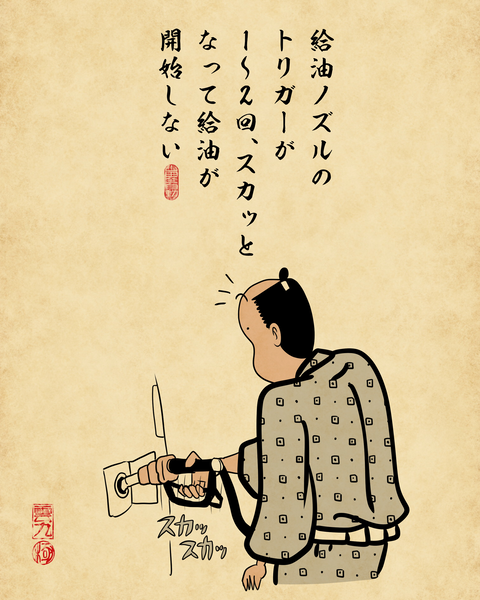 給油ノズルの
トリガーが
1〜2回、スカッと
なって給油が
開始しない
スカッ
スカッ